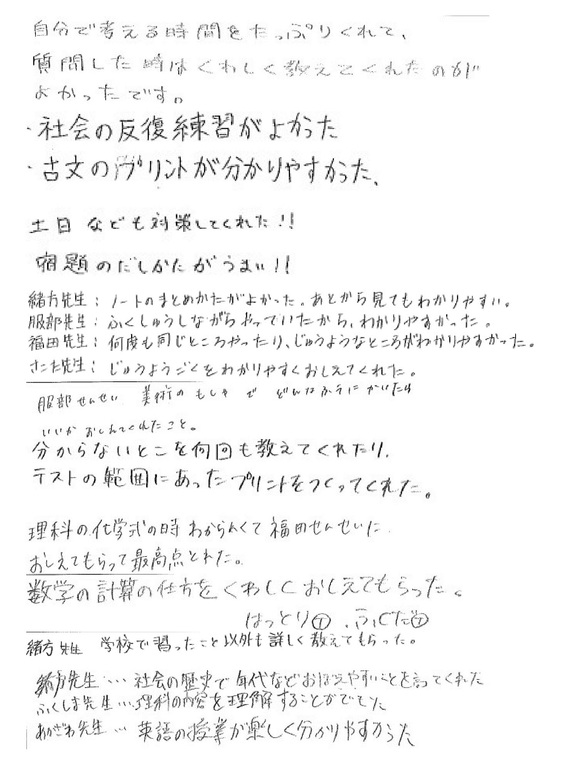 自分で考える時間をたっぷりくれて、
質問した時はくわしく教えてくれたのが
よかったです。
・社会の反復練習がよかった
・古文のプリントが分かりやすかった、
土日なども対策してくれた!!
宿題のだしかたがうまい!!
緒方先生：ノートのまとめかたがよかった。あとから見てもわかりやすい。
服部先生：ふくしゅうしながらやっていたから、わかりやすかった。
福田先生：何度も同じところやったり、じゅうようなところがわかりやすかった。
さこた先生：じゅうようごくをわかりやすくおしえてくれた。
服部せんせい 美術の もしゃ で どんなふうに かいたら
いいか おしえてくれたこと。
分からないとこを何回も教えてくれたり、
テストの範囲にあったプリントをつくってくれた。
理科の化学式の時 わからんくて 福田せんせいに
おしえてもらって最高点とれた。
数学の計算の仕方をくわしくおしえてもらった。
はっとり 、ふくだ
緒方先生 学校で習ったこと以外も詳しく教えてもらった。
緒方先生…社会の歴史で年代などおぼえやすいことを言ってくれた
ふくしま先生…理科の内容を理解することができた
あかざわ先生…英語の授業が楽しく分かりやすかった